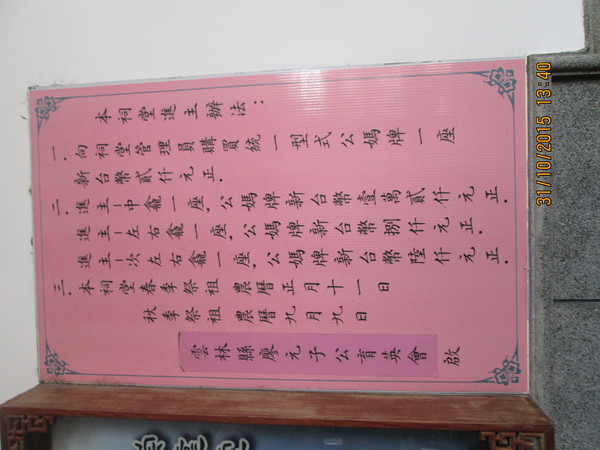 本祠堂進主辦法：
一.向祠堂管理員購買統一型式公媽牌一座
新台幣貳仟元正.
二.進主-中龕一座.公媽牌新台幣壹萬貳仟元正.
進主-左右龕一座.公媽牌新台幣捌仟元正.
進主-次左右龕一座.公媽牌新台幣陸仟元正.
三.本祠堂春季祭祖 農曆正月十一日
秋季祭祖 農曆九月九日
雲林縣廖元子公育英會 啟
31/10/2015 13:40